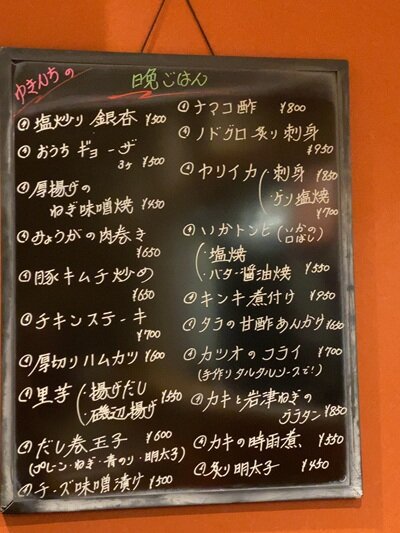 ゆきんちの 晩ごはん
塩炒り銀杏 ¥500
おうちギョーザ
3ヶ ¥500
厚揚げの
ねぎ味噌焼 ¥450
みょうがの肉巻き
¥650
豚キムチ炒め
¥650
チキンステーキ
¥700
厚切りハムカツ ¥600
里芋 (・揚げだし
・磯辺揚げ ¥550
だし巻玉子 ¥600
(プレーン・ねぎ・青のり・明太子)
チーズ味噌漬け ¥500
ナマコ酢 ¥800
ノドグロ炙り刺身
¥950
ヤリイカ (・刺身 ¥850
・ゲソ塩焼
¥700
いかトンビ (いかの
口ばし)
(・塩焼
・バター醤油焼 ¥550
キンキ煮付け ¥950
タラの甘酢あんかけ ¥650
カツオのフライ ¥700
(手作りタルタルソースで!)
カキと岩津ねぎの
グラタン ¥850
カキの時雨煮 ¥550
炙り明太子 ¥450